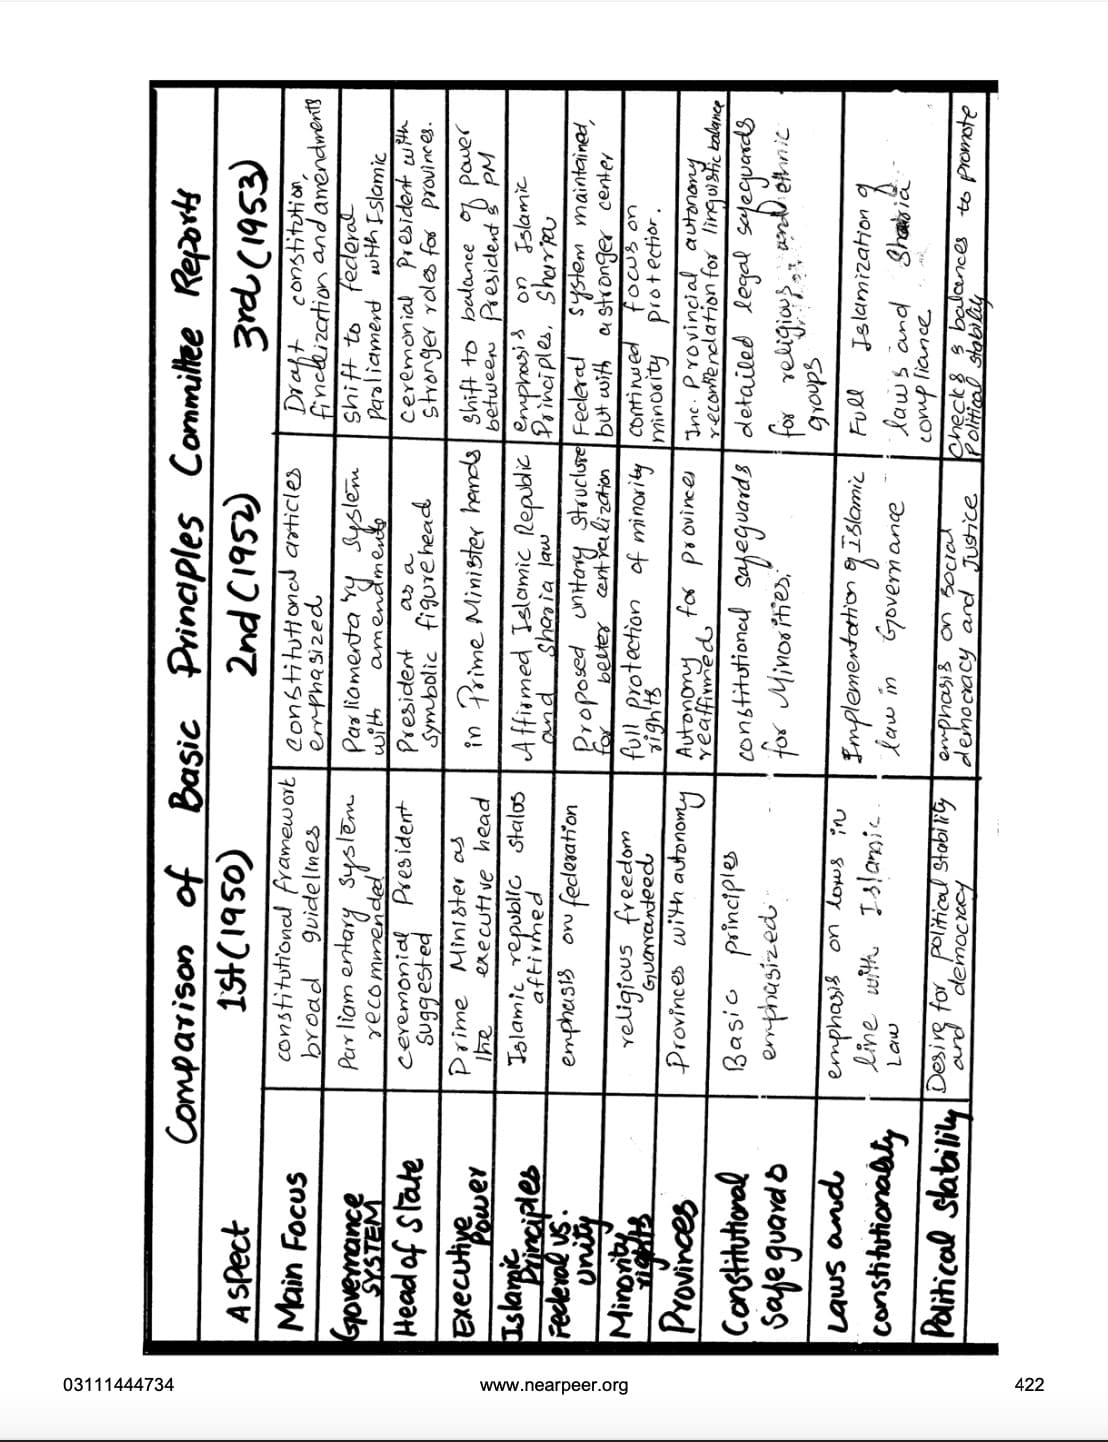 Comparison of Basic Principles Committee Reports
Aspect 1st (1950) 2nd (1952) 3rd (1953)
Main Focus
constitutional framework
broad guidelines
constitutional articles
emphasized
Draft constitution,
finalization and amendments
Governance
SYSTEM
Parliamentary system
recommended
Parliamentary system
with amendments
Shift to federal
Parliament with Islamic
Head of State
ceremonial President
suggested
President as a
symbolic figure head
ceremonial President with
stronger roles for provinces.
Executive
Power
Prime Minister as
the executive head
in Prime Minister hands
shift to balance of power
between President & PM
Islamic
Principles
Islamic republic status
affirmed
Affirmed Islamic Republic
and Sharia law
emphasis on Islamic
Principles, Sharia
Federal vs.
unity
emphasis on federation
Proposed unitary structure
for better centralization
Federal system maintained,
but with a stronger center
Minority
rights
religious freedom
Guarranteed
full protection of minority
rights
continued focus on
minority protection.
Provinces
Provinces with autonomy
Autonomy for provinces
reaffirmed
Inc. Provincial autonomy
recommendation for linguistic balance
Constitutional
Safeguards
Basic principles
emphasized
constitutional safeguards
for Minorities.
detailed legal safeguards
for religious and ethnic
groups
Laws and
constitutionality
emphasis on laws in
line with Islamic
Law
Implementation of Islamic
law in Governance
Full Islamization of
laws and Sharia
compliance
Political Stability
Desire for political stability
and democracy
emphasis on social
democracy and Justice
Checks & balances to promote
Political stability
03111444734 www.nearpeer.org 422